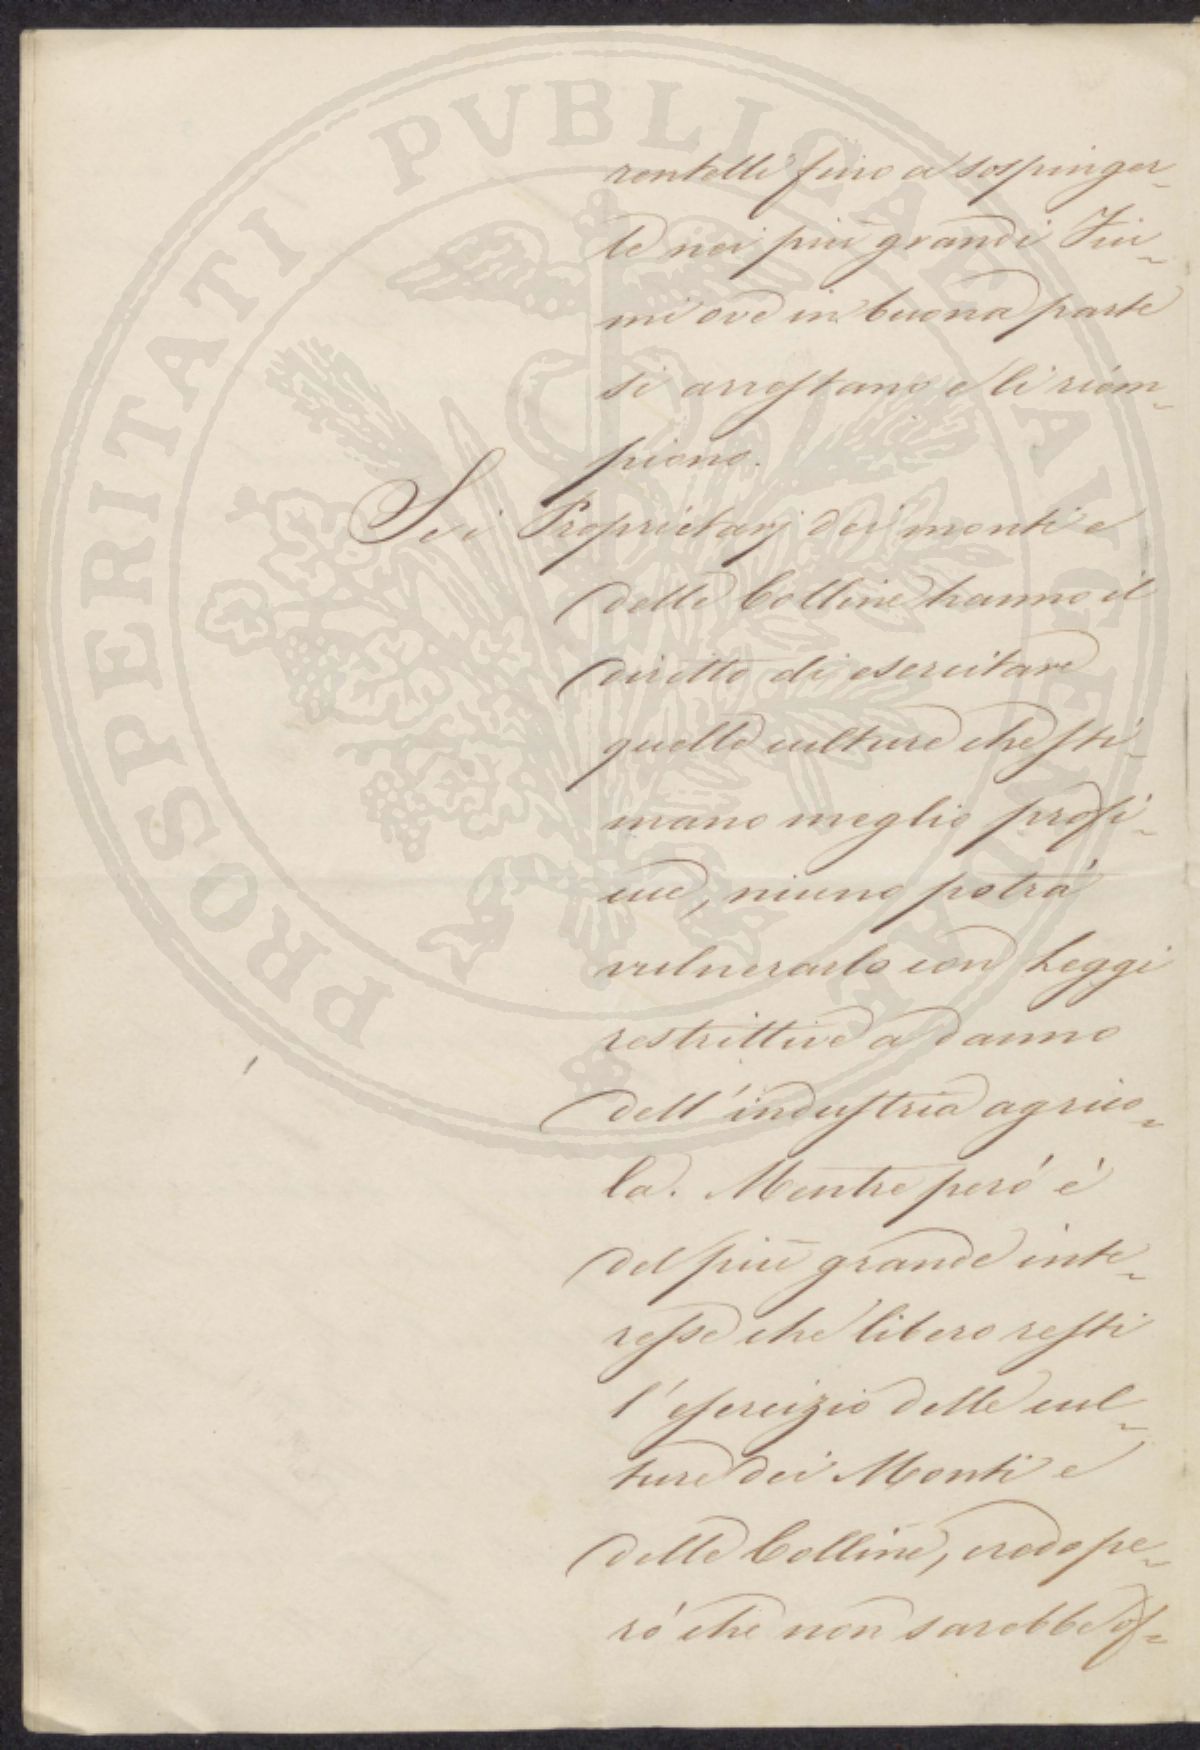 PROSPERITATI PVBLICAE AVGENDAE
rentelli fino a sospinger-
le nei più grandi Fiu-
mi ove in buona parte
si arrestano e li riem-
piono.
Se i Proprietarj dei monti e
delle Colline hanno il
diritto di esercitare
quelle culture che sti-
mano meglio profi-
cue, niuno potrà
vulnerarlo con Leggi
restrittive a danno
dell'industria agrico-
la. Mentre però è
del più grande inte-
resse che libero resti
l'esercizio delle cul-
ture dei Monti e
delle Colline, credo pe-
rò che non sarebbe of-